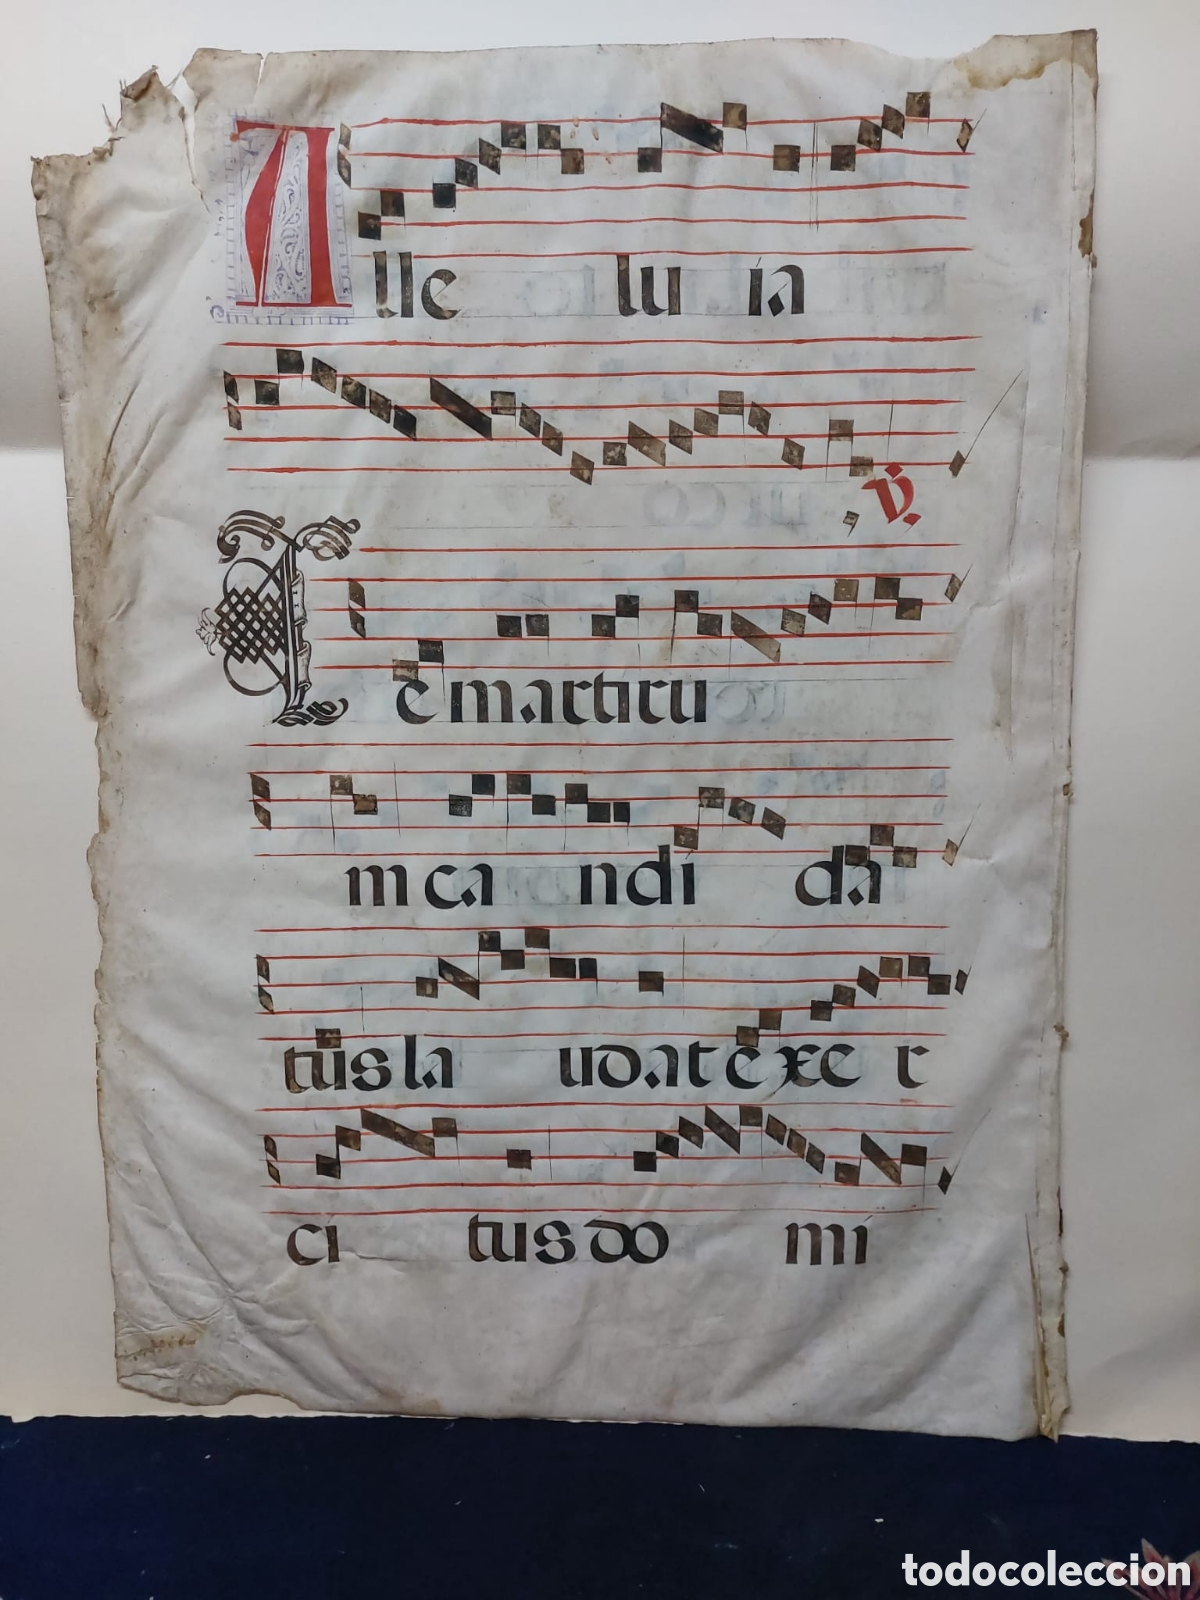 Alle lu ia
℣.
Te martiru
m ca ndi da
tus la udat exe r
ci tus do mi
todocoleccion